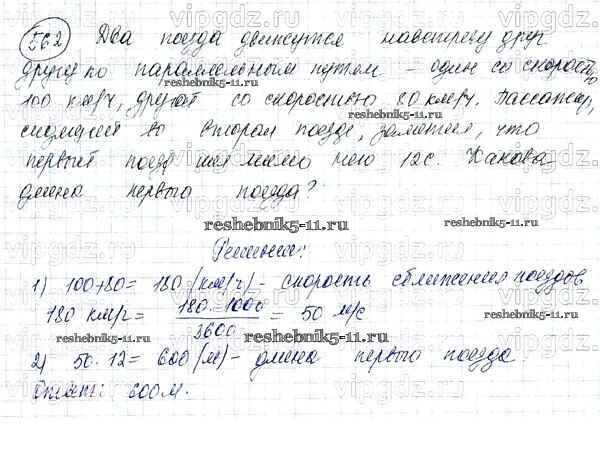 562 Два поезда движутся навстречу друг
другу по параллельным путям - один со скоростью
100 км/ч, другой со скоростью 80 км/ч. Пассажир,
сидящий во втором поезде, заметил, что
первый поезд шел мимо него 12 с. Какова
длина первого поезда?
Решение:
1) 100+80= 180 (км/ч) - скорость сближения поездов
180 км/ч = 180·1000/3600 = 50 м/с
2) 50·12= 600 (м) - длина первого поезда
Ответ: 600 м.
vipgdz.com
reshebnik5-11.ru